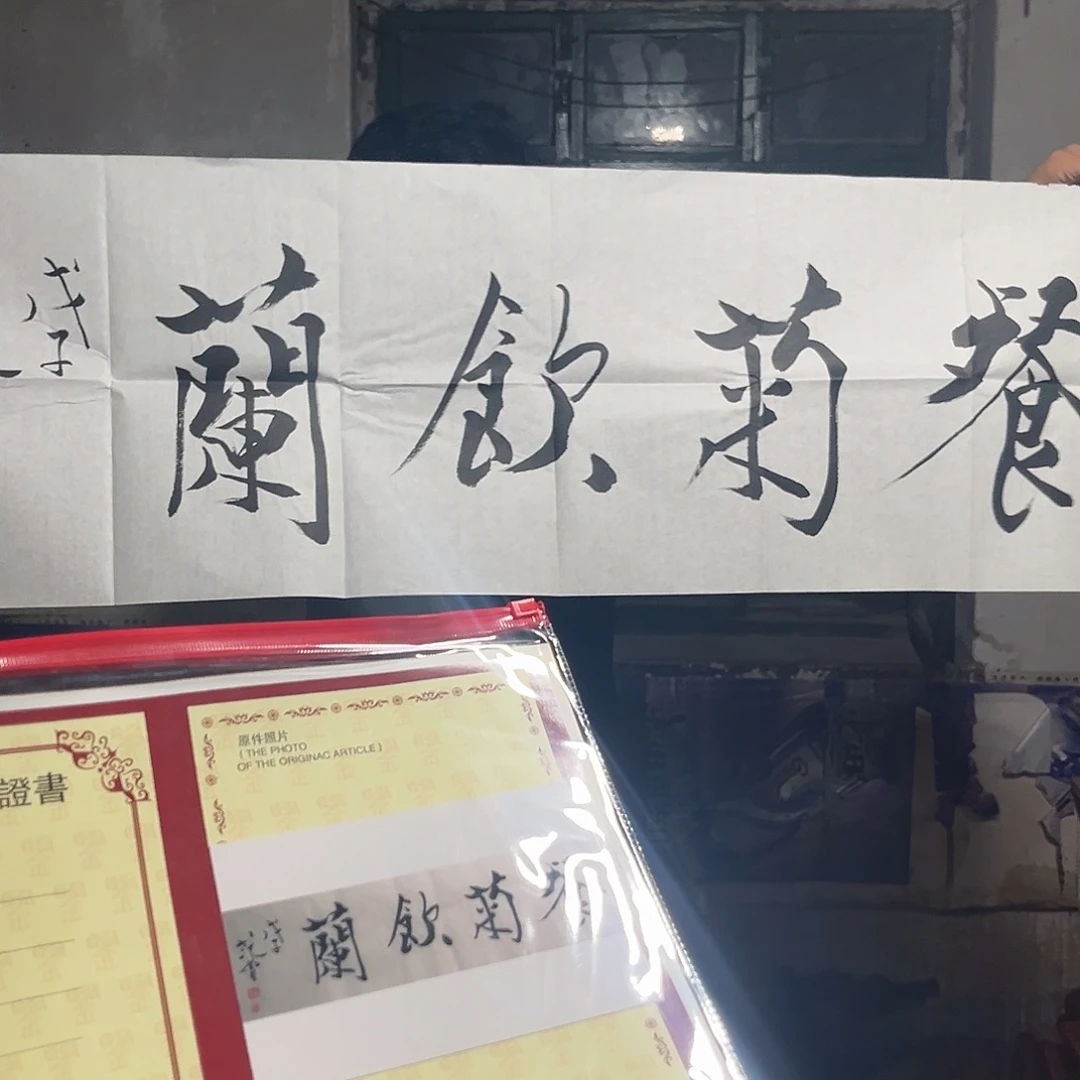 餐菊飲蘭
戊子
證書
原件照片
( THE PHOTO
OF THE ORIGINAC ARTICLE )
餐菊飲蘭
戊子